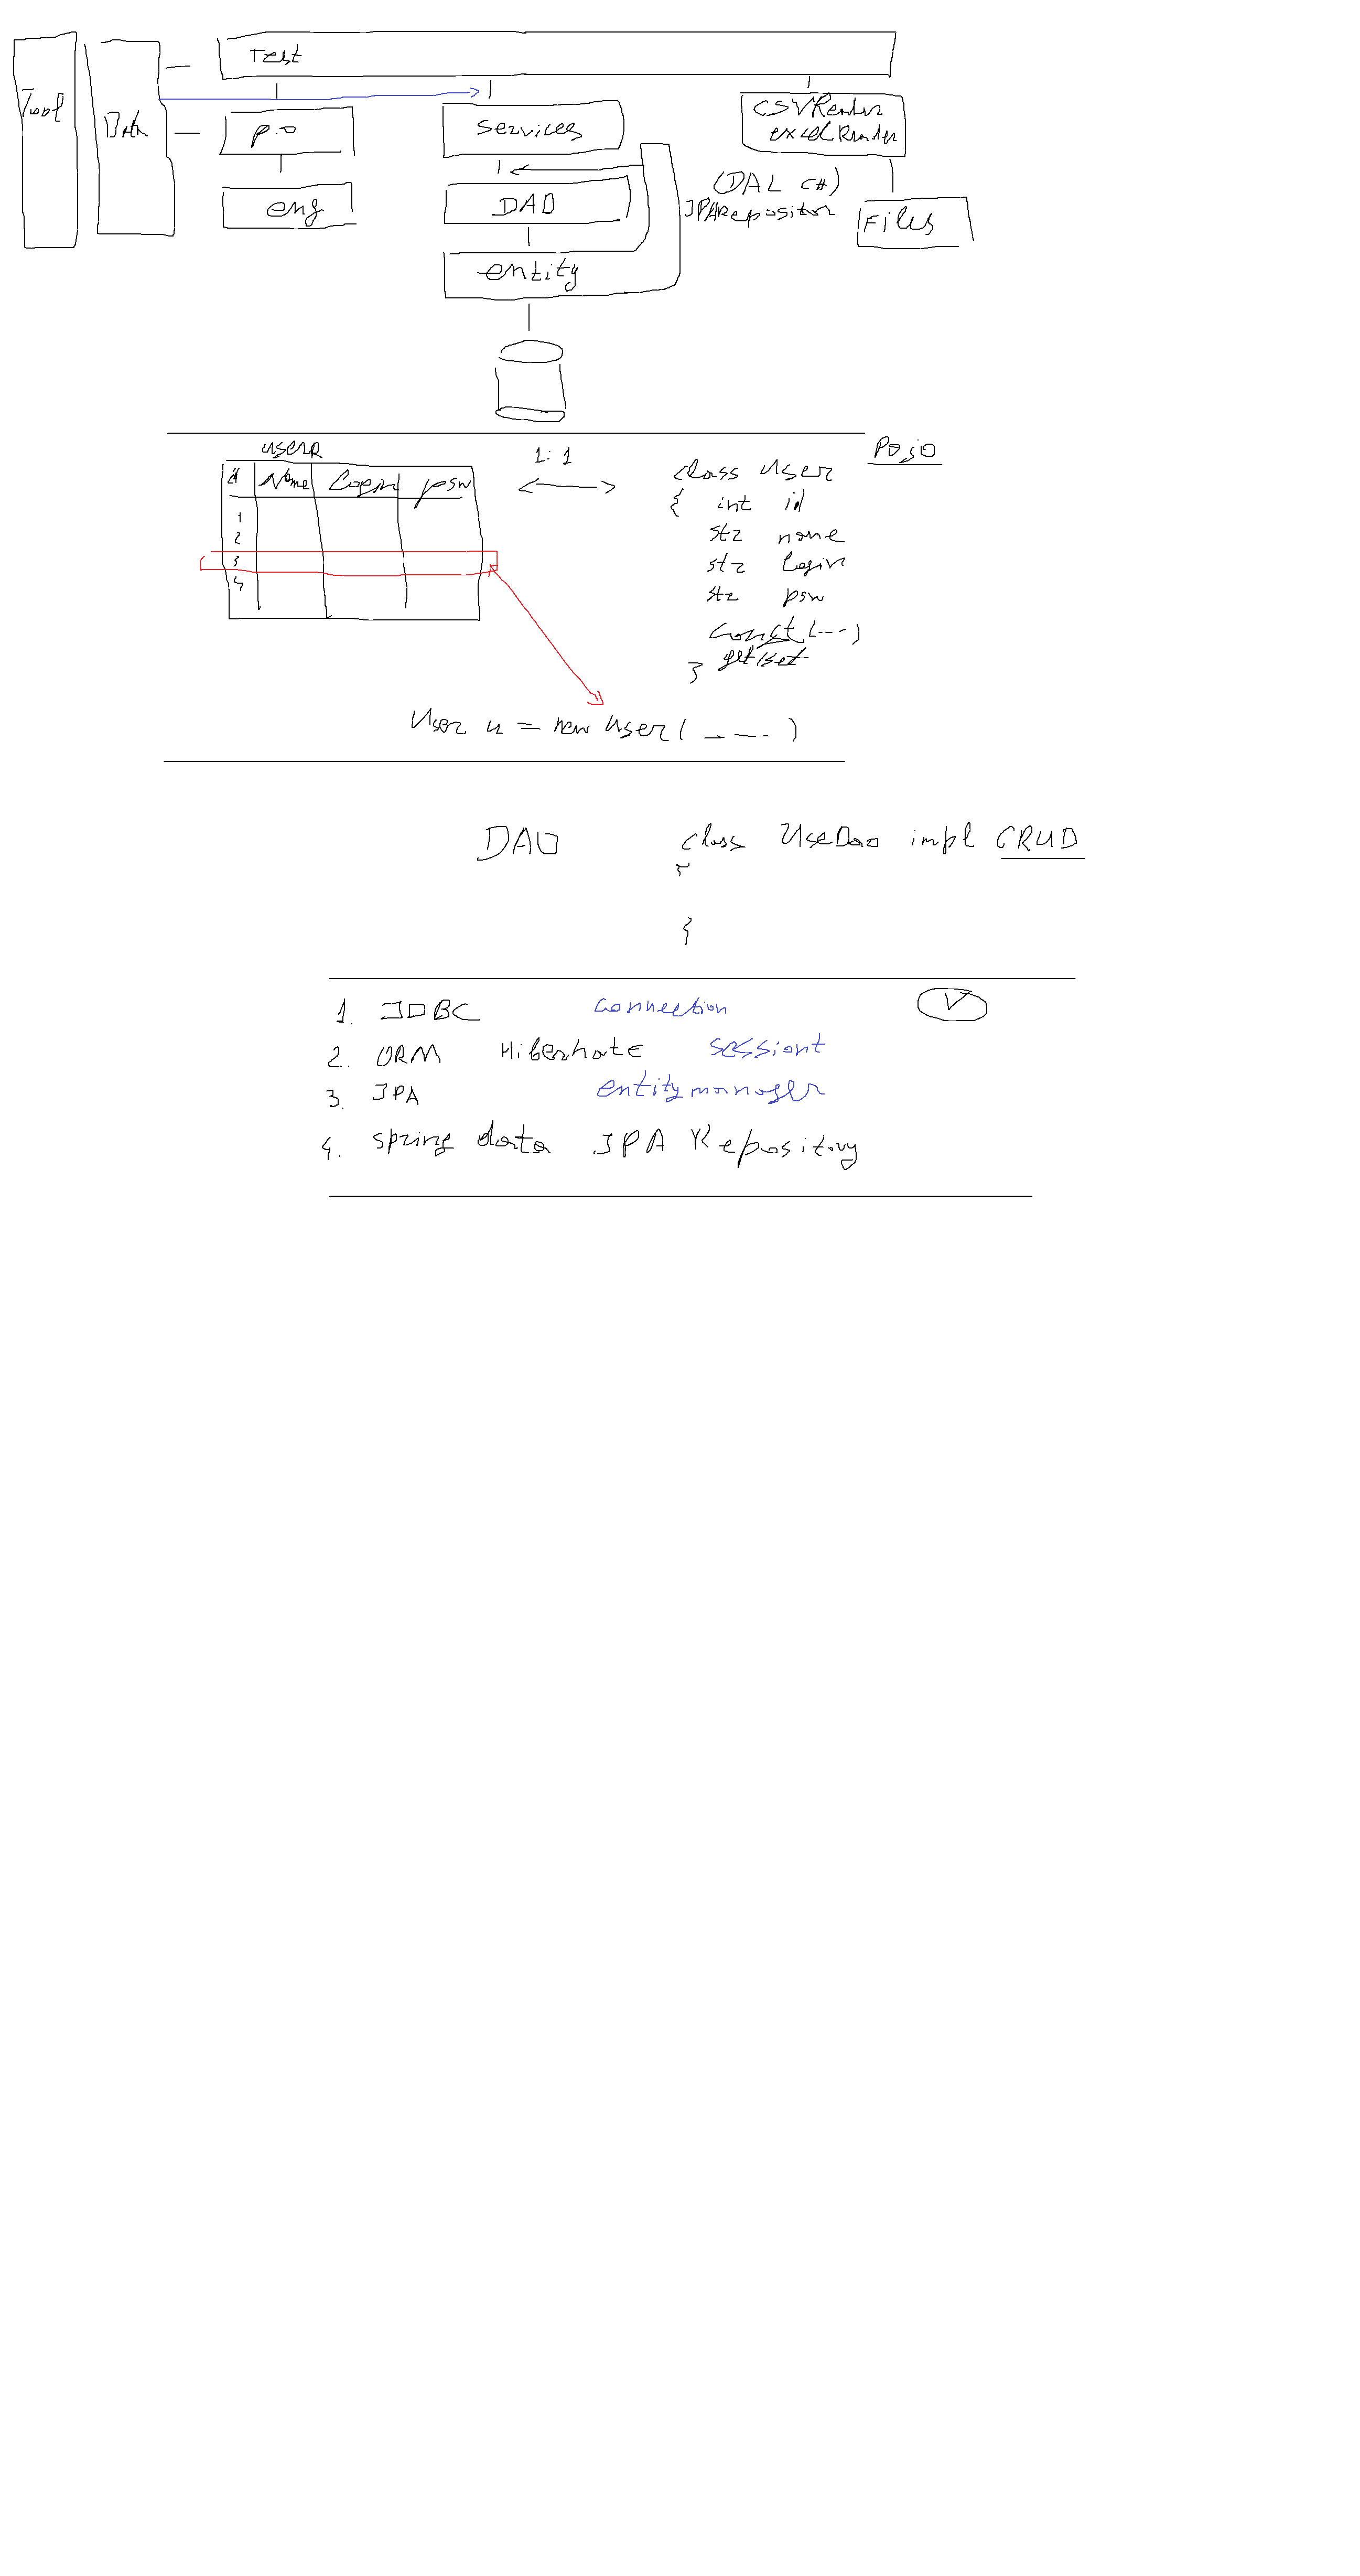 Test
Tool
Data
p.o
Services
CSVReader
excelReader
eng
DAO
(DAL C#)
JPARepositor
Files
entity
user
1:1
Pojo
id Name Login psw
1
2
3
4
class User
{ int id
str name
str login
str psw
const(---)
get/set
}
User u = new User( - --- )
DAO
class UseDao impl CRUD
{
}
1. JDBC connection V
2. ORM Hibernate sessiont
3. JPA entitymanager
4. spring data JPA Repository